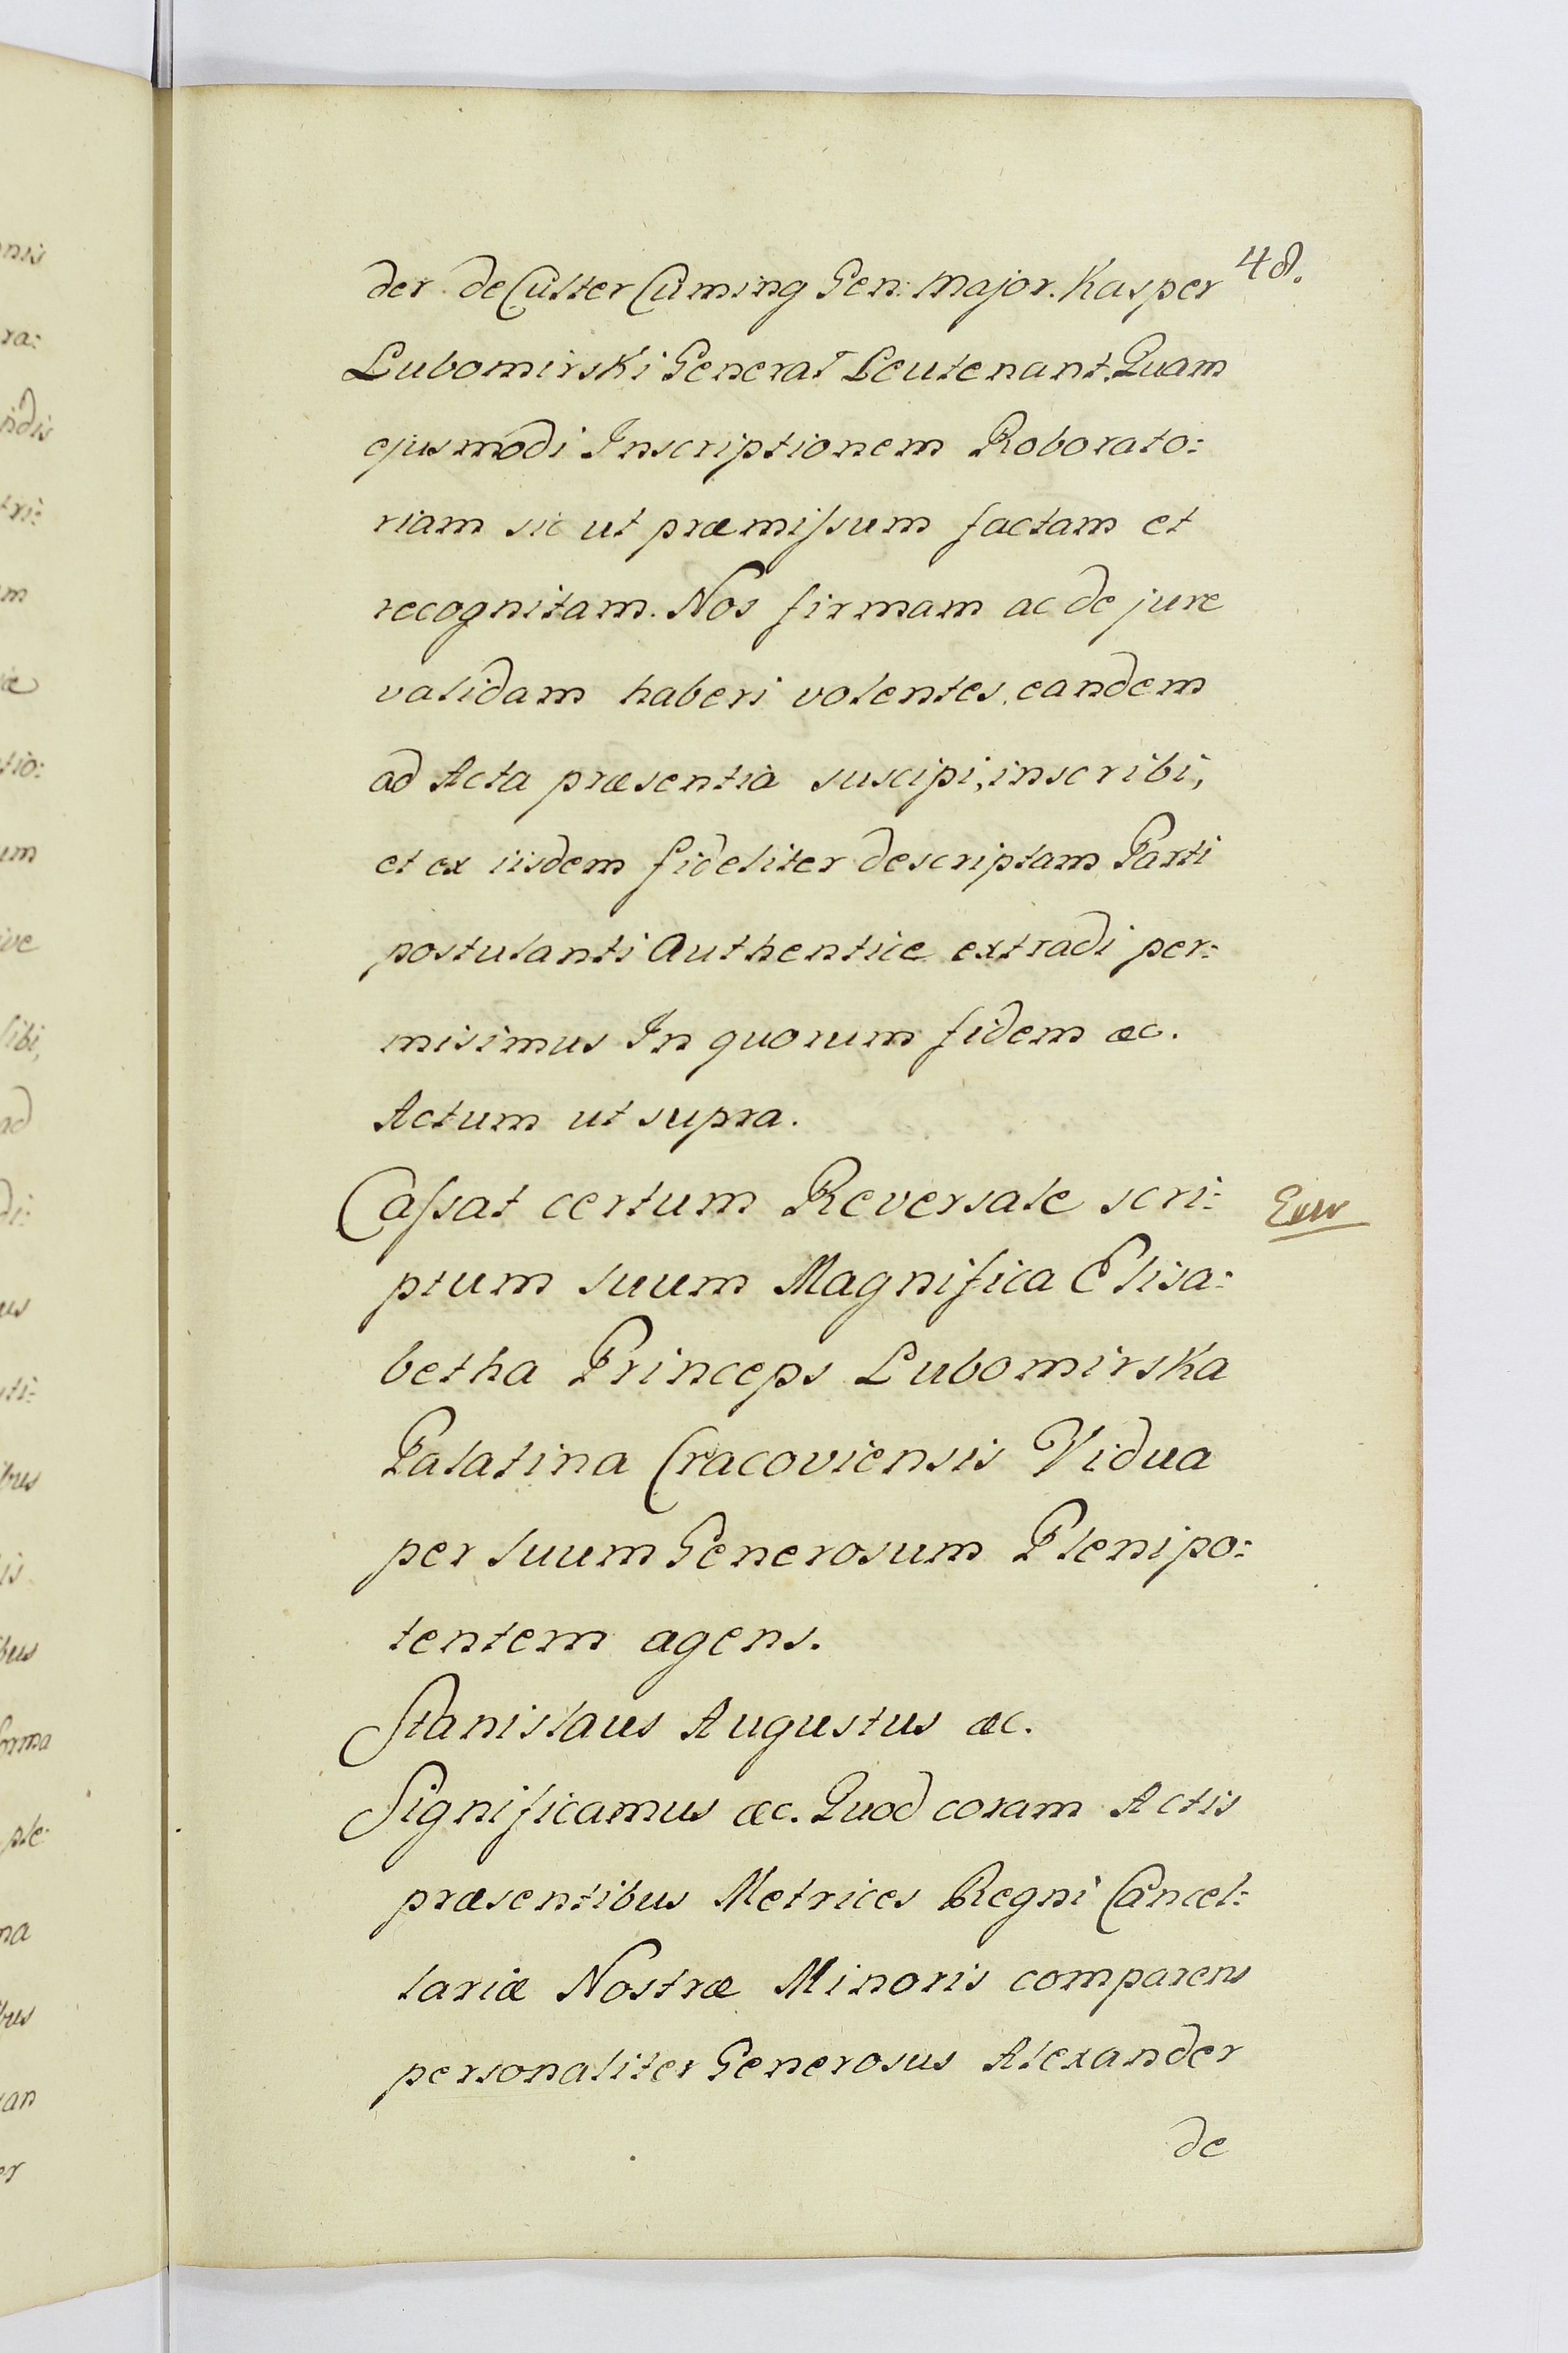 48.
der de Culter Cuming Gen: Major. Kasper
Lubomirski General Leutenant. Quam
ejusmodi Inscriptionem Roborato:
riam sic ut præmiſsum factam et
recognitam. Nos firmam ac de jure
validam haberi volentes, eandem
ad Acta præsentia suscipi, inscribi,
et ex iisdem fideliter descriptam Parti
postulanti Authentice extradi per:
misimus In quorum fidem æc.
Actum ut supra.
Caſsat certum Reversale scri:
ptum suum Magnifica Elisa:
betha Princeps Lubomirska
Palatina Cracoviensis Vidua
per suum Generosum Plenipo:
tentem agens.
Stanislaus Augustus æc.
Significamus æc. Quod coram Actis
præsentibus Metrices Regni Cancel:
lariæ Nostræ Minoris comparens
personaliter Generosus Alexander
de